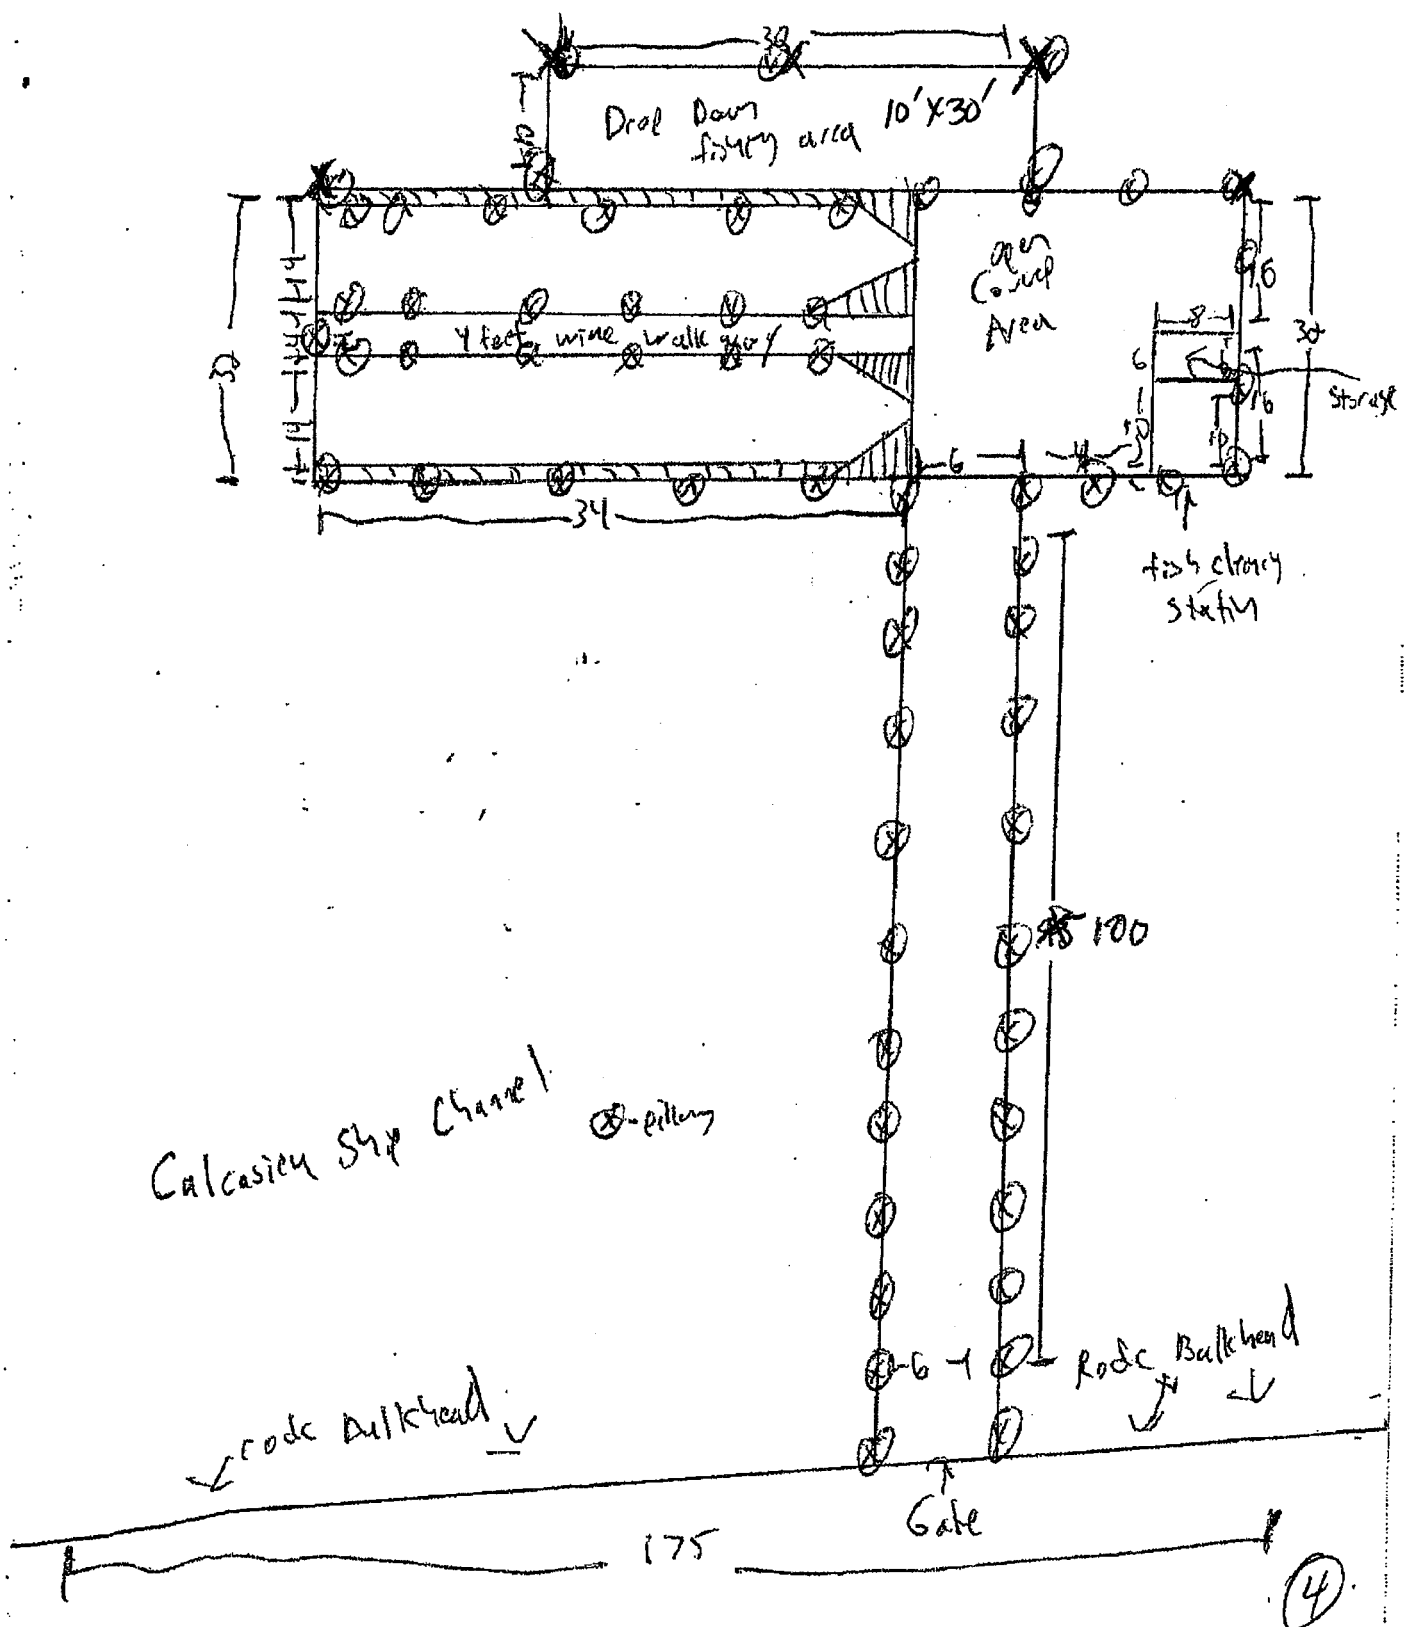 30
10
Drop Down 10'X30'
fishing area
32
14
14
open
Coverd
Area
16
32
8
6
16
Storage
10
4 feet wide walk way
6
4
34
fish cleaning
station
100
Calcasieu Ship Channel
⊗-pilling
6
Rock Bulkhead
rock Bulkhead
Gate
175
4